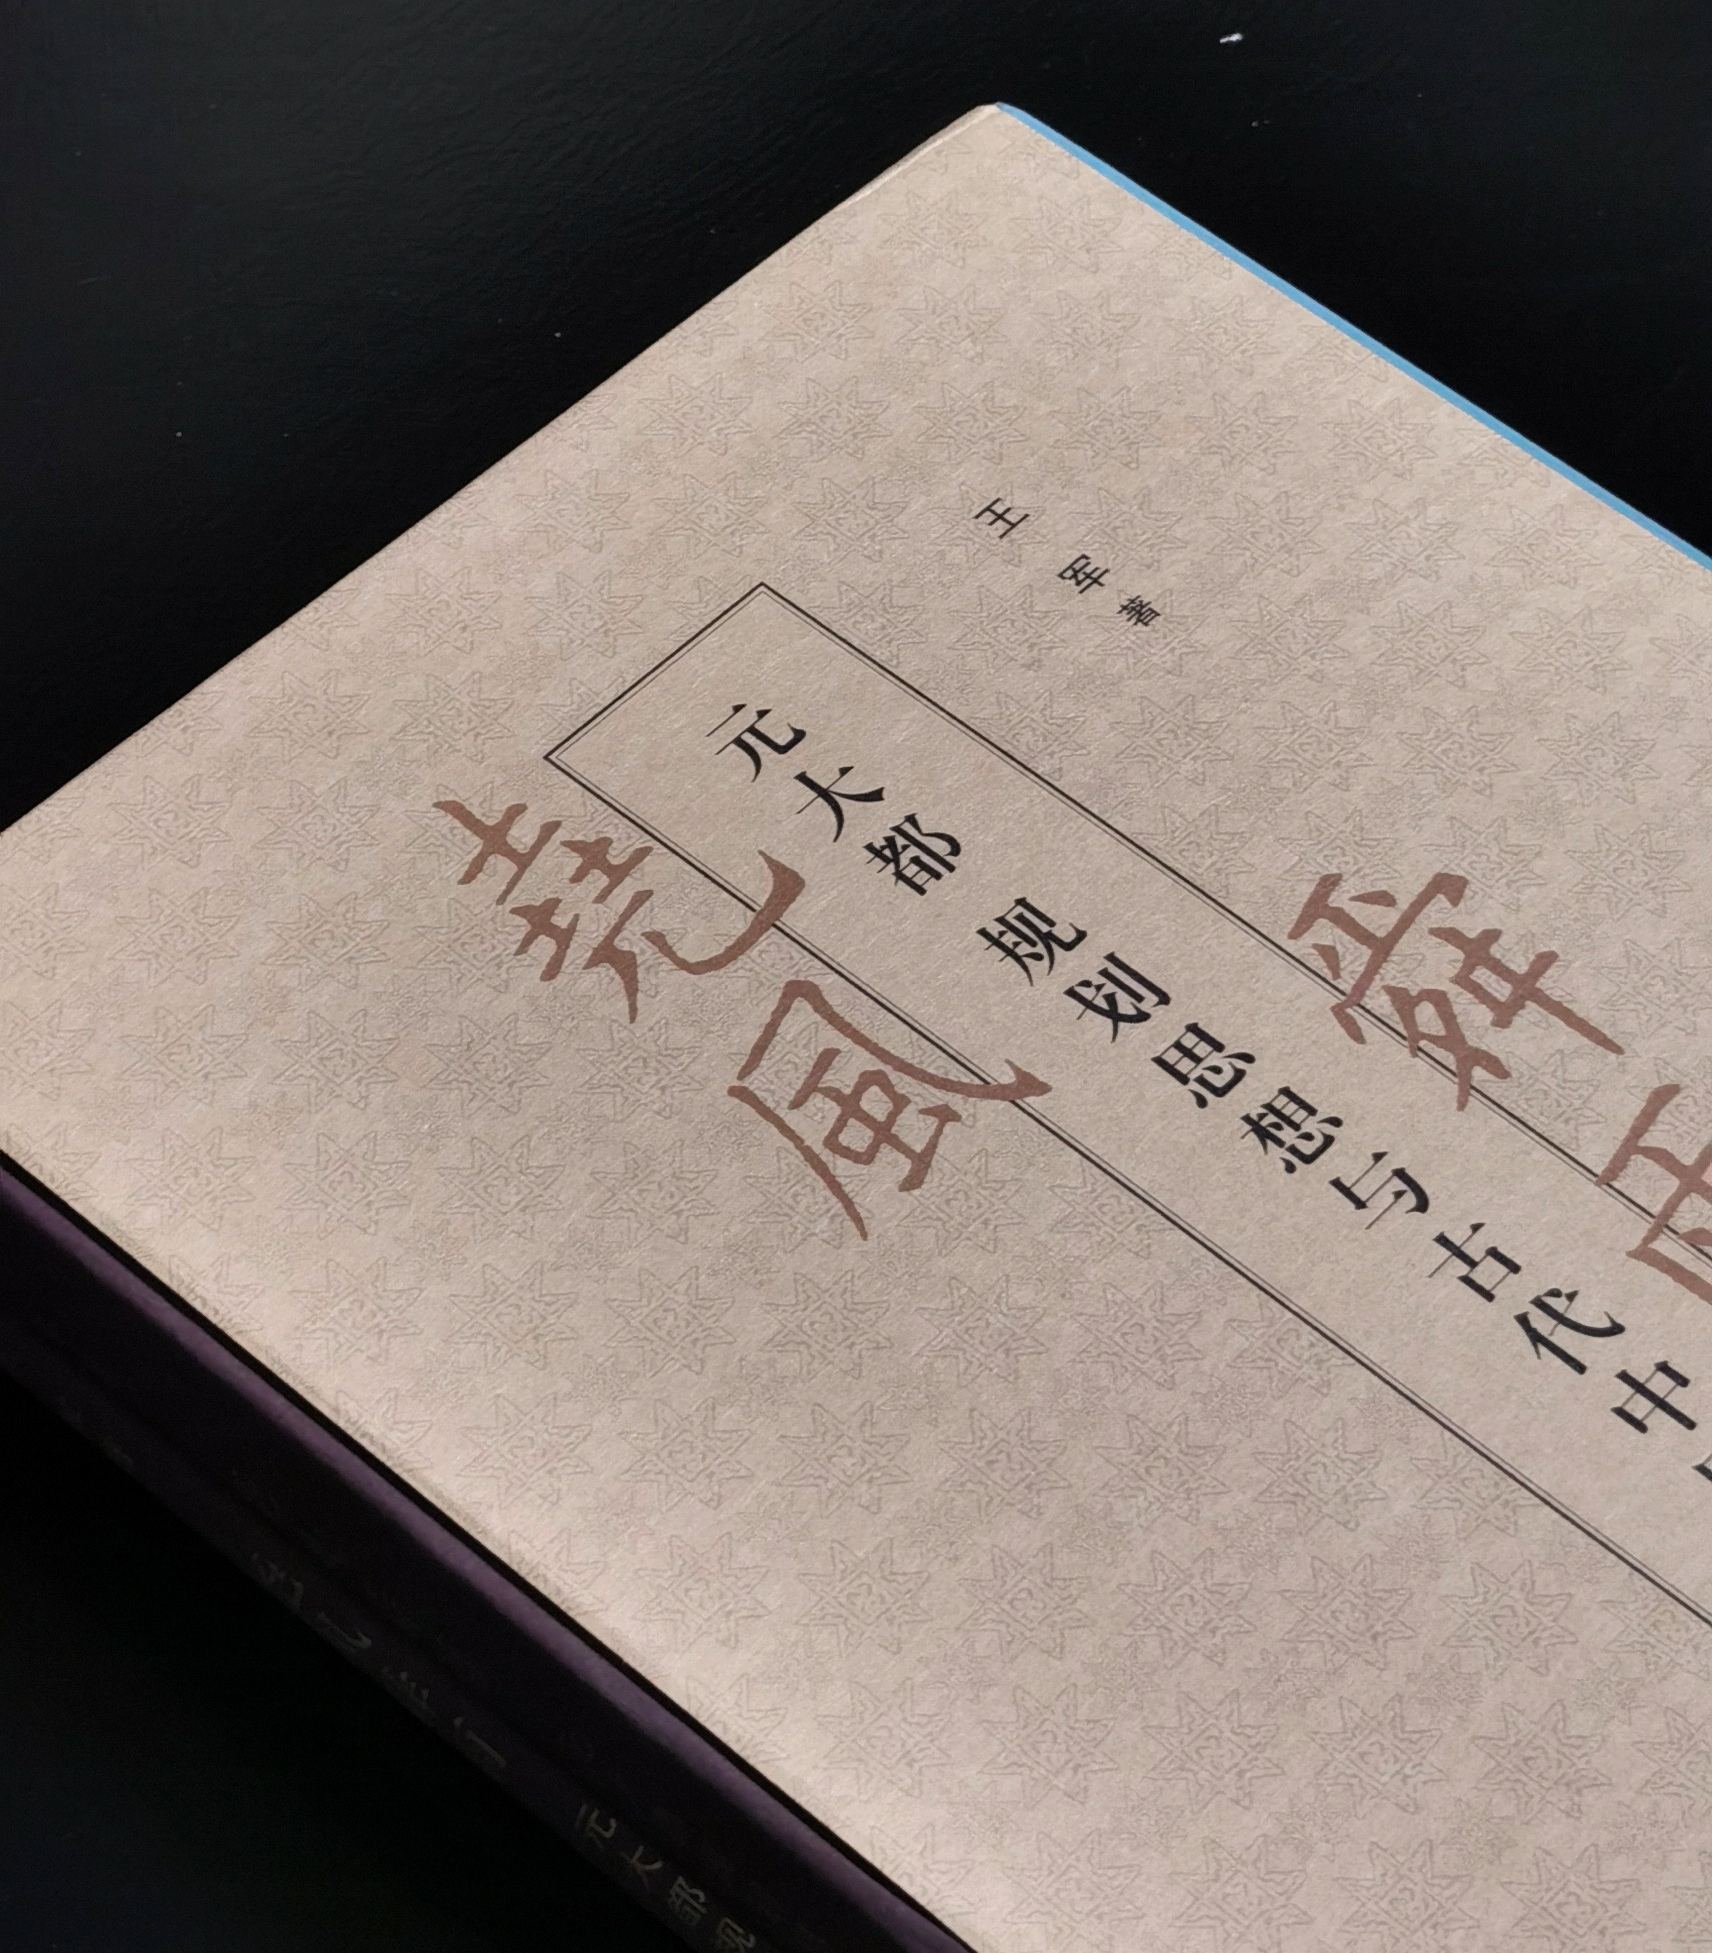 王军著
堯風
舜
元大都 规划思想与古代中
元大都规